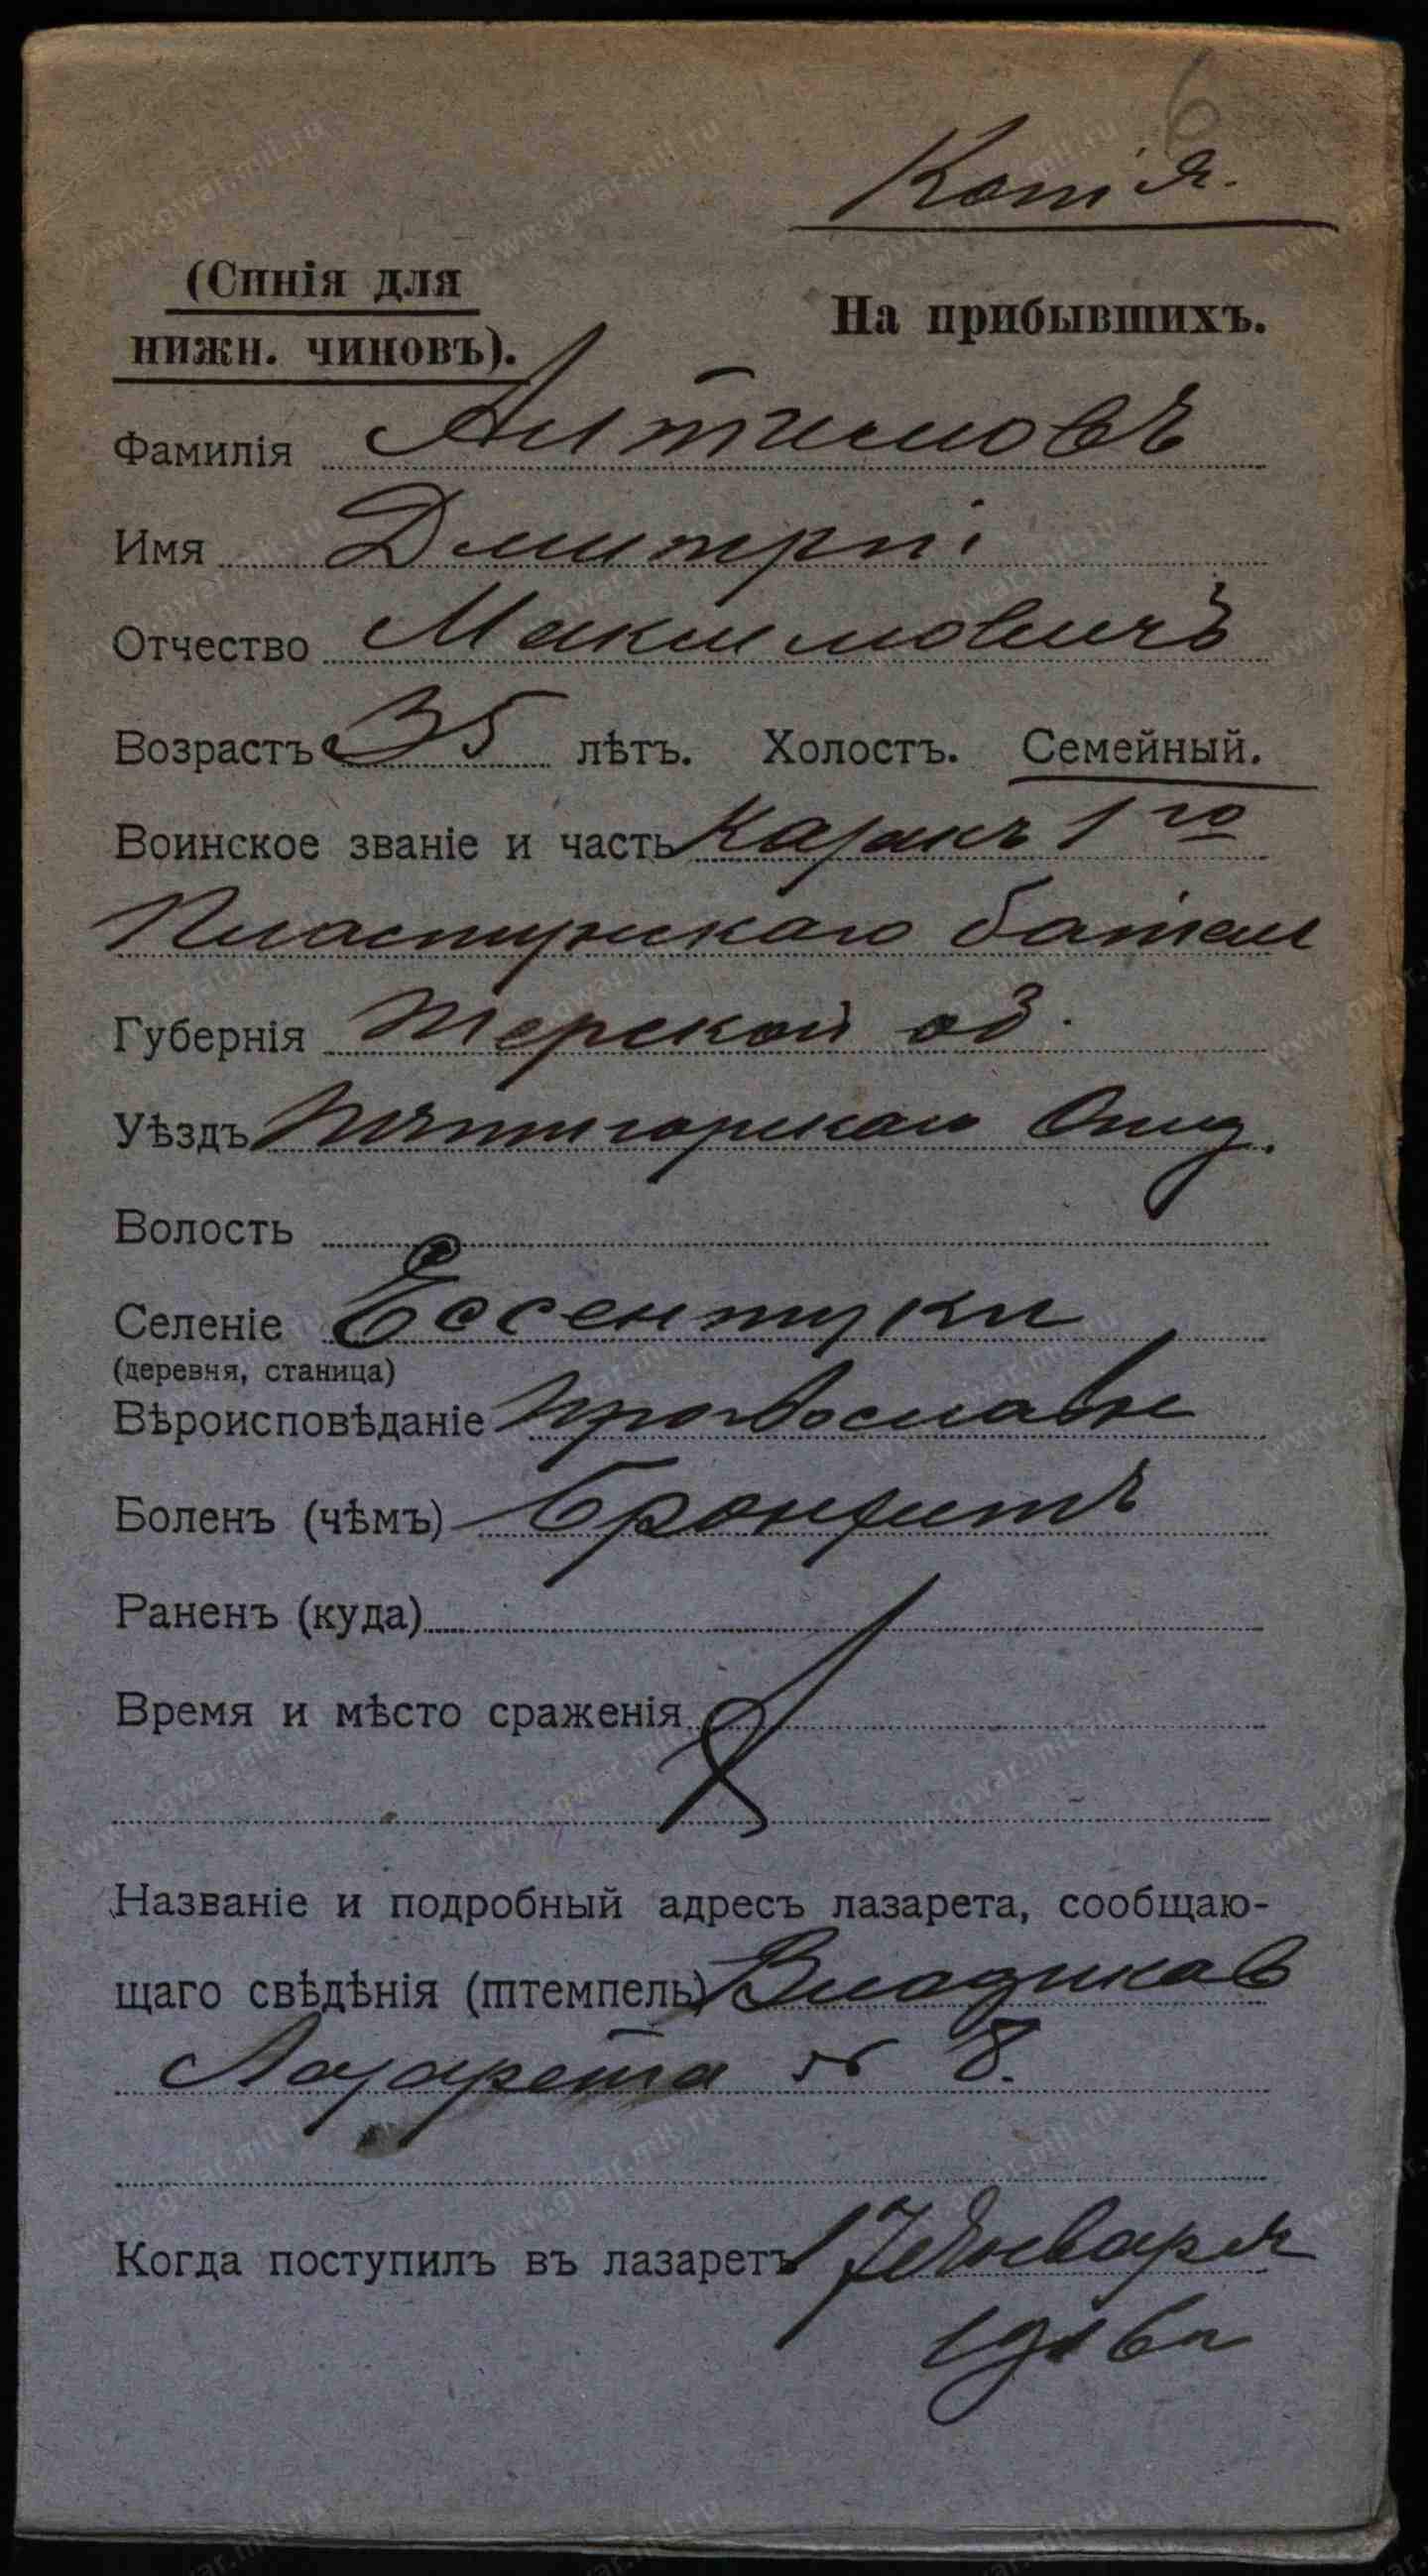 6
Копія.
(Синія для
нижн. чиновъ).
На прибывшихъ.
Фамилія Антимовъ
Имя Дмитрій
Отчество Максимовичъ
Возрастъ 35 лѣтъ. Холостъ. Семейный.
Воинское званіе и часть Казакъ 1го
Пластунскаго батал
Губернія Терской об.
Уѣздъ Пятигорскаго Отд.
Волость
Селеніе Ессентуки
(деревня, станица)
Вѣроисповѣданіе православн
Боленъ (чѣмъ) Бронхитъ
Раненъ (куда)
Время и мѣсто сраженія
Названіе и подробный адресъ лазарета, сообщаю-
щаго свѣдѣнія (штемпель) Владикав
Лазарета № 8.
Когда поступилъ въ лазаретъ 17 Января
1916 г